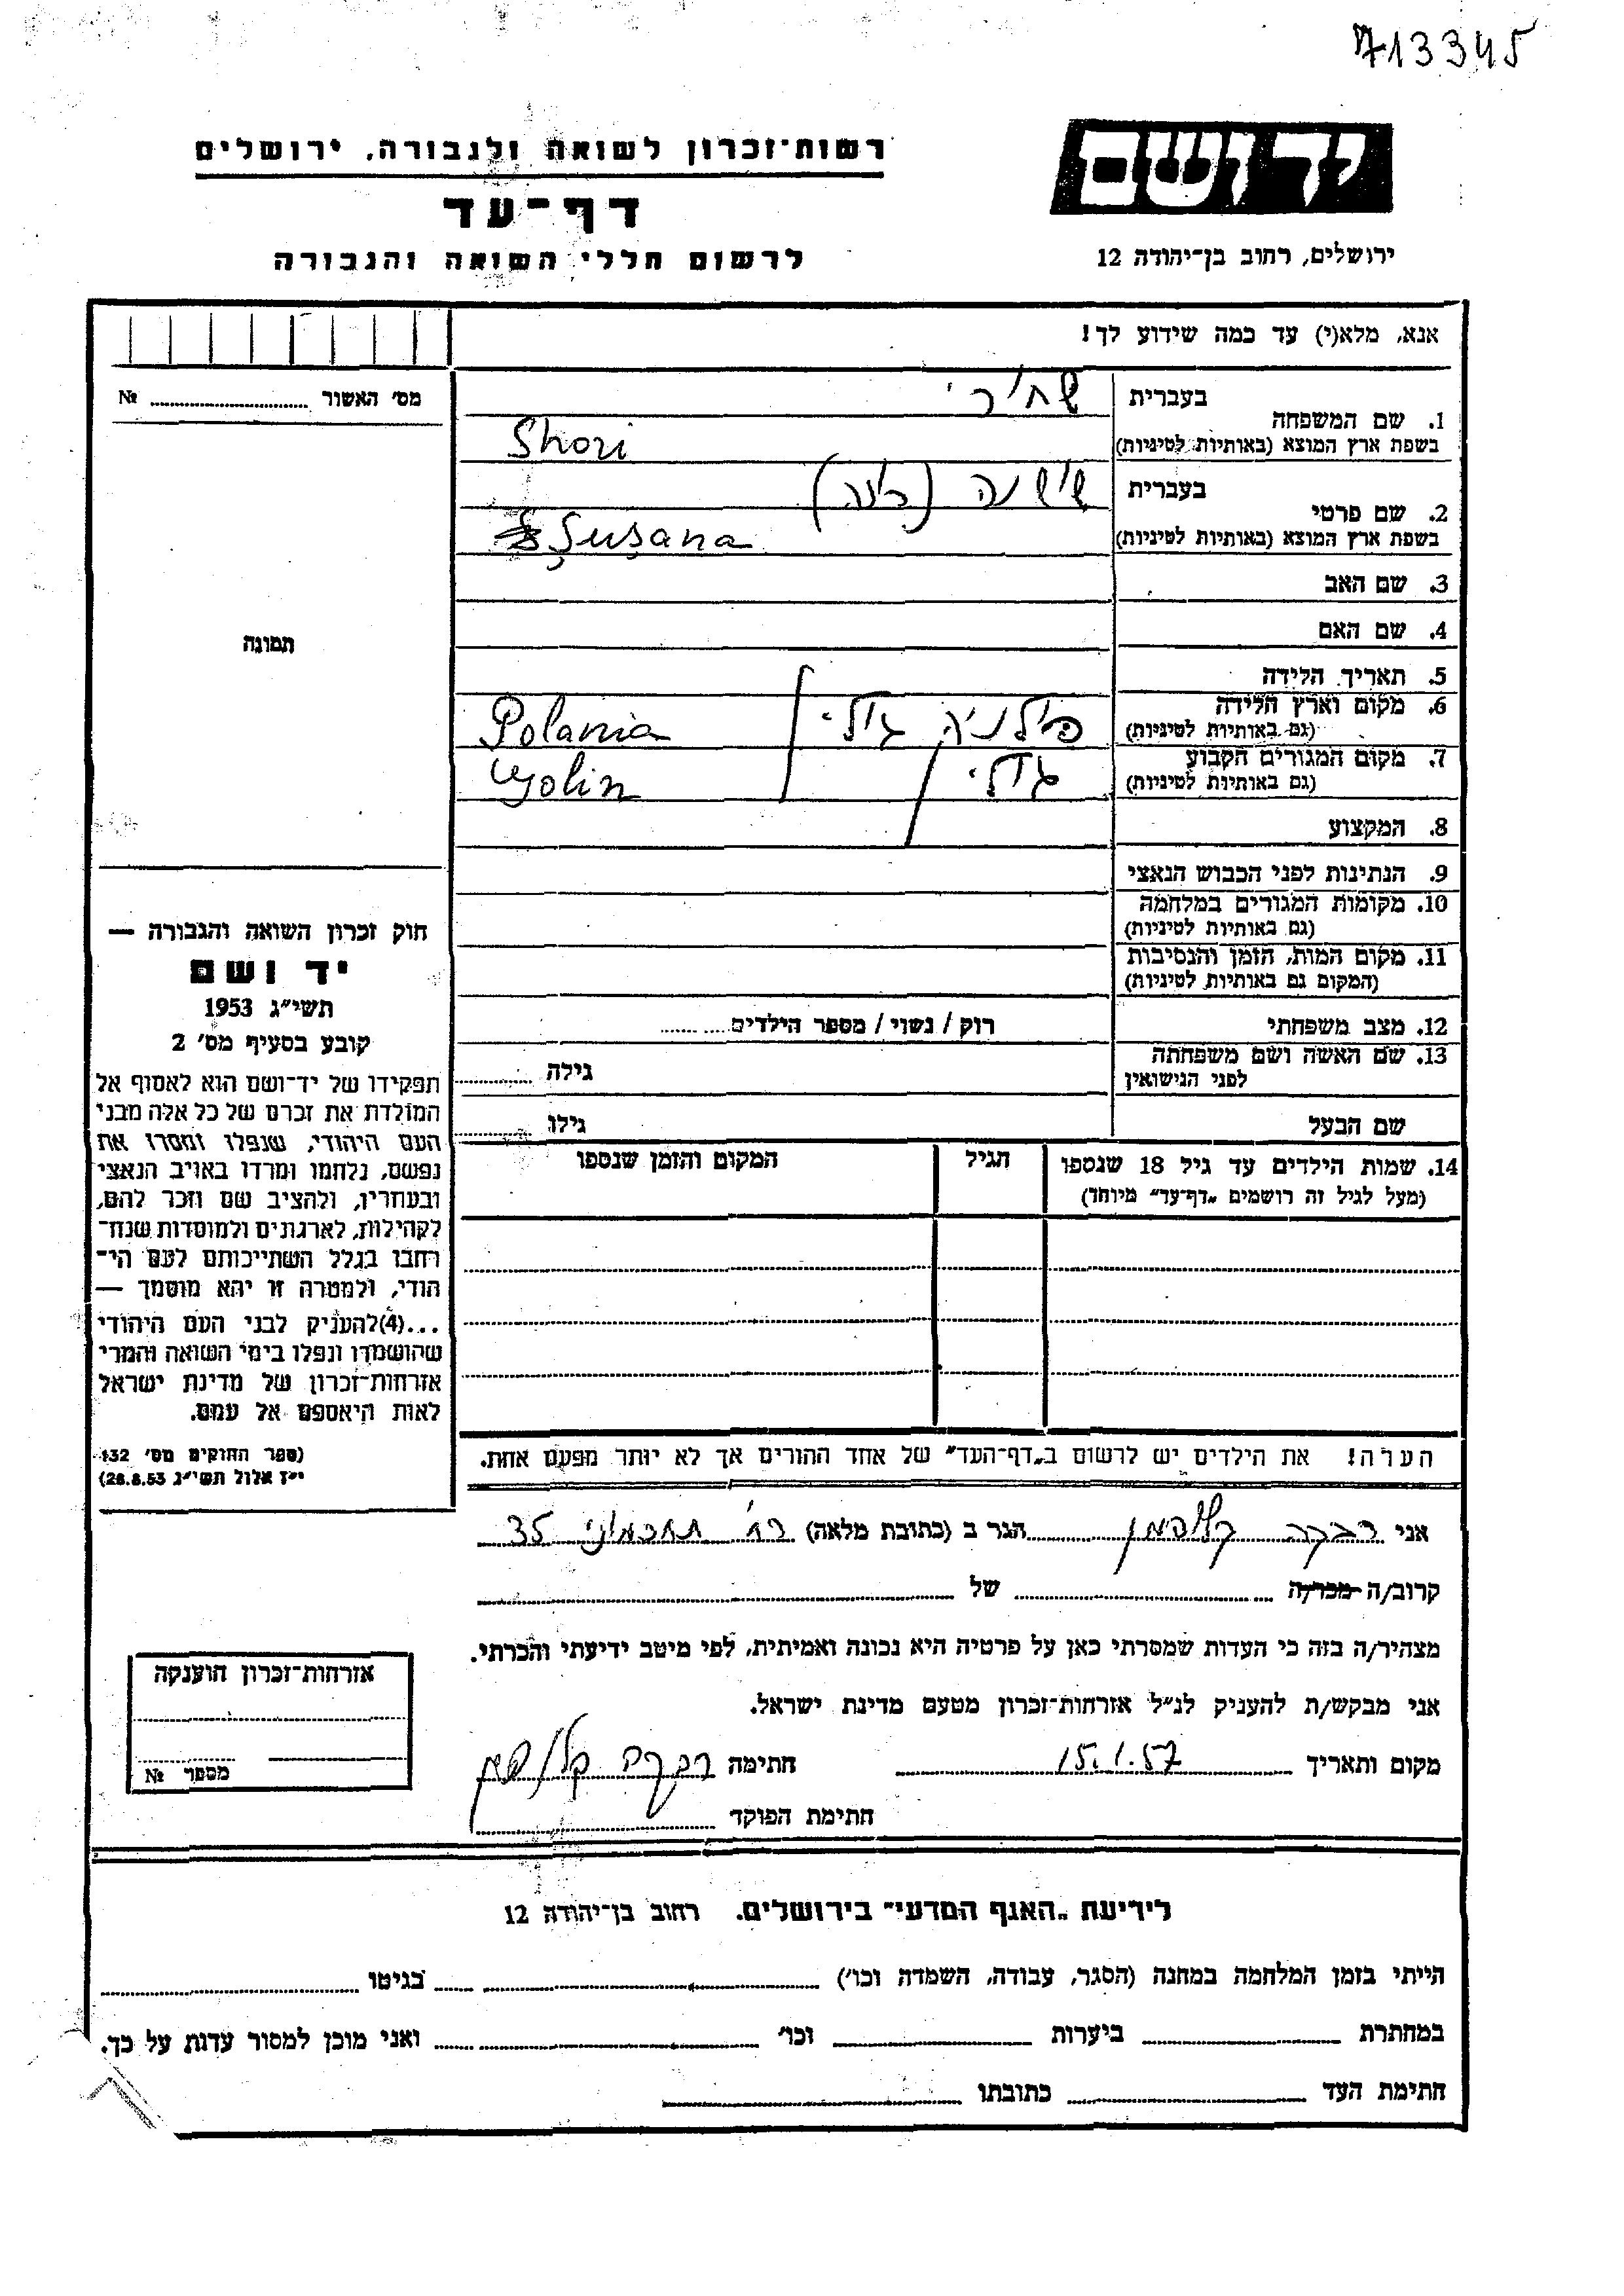 713345
ידושם
רשות־זכרון לשואה ולגבורה, ירושלים
דף־עד
ירושלים, רחוב בן־יהודה 12
לרשום חללי השואה והגבורה
אנא, מלא(י) עד כמה שידוע לך!
מס׳ האשור № 
1. שם המשפחה
בעברית
בשפת ארץ המוצא (באותיות לטיניות)
Shori
2. שם פרטי
בעברית
בשפת ארץ המוצא (באותיות לטיניות)
Susana
3. שם האב
4. שם האם
תמונה
5. תאריך הלידה
6. מקום וארץ הלידה
(גם באותיות לטיניות)
Polania
7. מקום המגורים הקבוע
(גם באותיות לטיניות)
8. המקצוע
9. הנתינות לפני הכבוש הנאצי
10. מקומות המגורים במלחמה
(גם באותיות לטיניות)
11. מקום המות, הזמן והנסיבות
(המקום גם באותיות לטיניות)
12. מצב משפחתי רוק / נשוי / מספר הילדים
13. שם האשה ושם משפחתה
לפני הנישואין
גילה
שם הבעל
גילו
14. שמות הילדים עד גיל 18 שנספו
(מעל לגיל זה רושמים „דף־עד״ מיוחד)
הגיל
המקום והזמן שנספו
חוק זכרון השואה והגבורה —
יד ושם
תשי״ג 1953
קובע בסעיף מס׳ 2
תפקידו של יד־ושם הוא לאסוף אל
המולדת את זכרם של כל אלה מבני
העם היהודי, שנפלו ומסרו את
נפשם, נלחמו ומרדו באויב הנאצי
ובעוזריו, ולהציב שם וזכר להם,
לקהילות, לארגונים ולמוסדות שנח־
רחבו בגלל השתייכותם לעם הי־
הודי, ולמטרה זו יהא מוסמך —
...(4)להעניק לבני העם היהודי
שהושמדו ונפלו בימי השואה והמרי
אזרחות־זכרון של מדינת ישראל
לאות היאספם אל עמם.
(ספר החוקים מס׳ 132
י״ז אלול תשי״ג 28.8.53)
הערה! את הילדים יש לרשום ב„דף־העד״ של אחד ההורים אך לא יותר מפעם אחת.
אני רבקה קלופמן הגר ב (כתובת מלאה) רח׳ תחכמוני 35
קרוב/ה מכר/ה של
מצהיר/ה בזה כי העדות שמסרתי כאן על פרטיה היא נכונה ואמיתית, לפי מיטב ידיעתי והכרתי.
אני מבקש/ת להעניק לנ״ל אזרחות־זכרון מטעם מדינת ישראל.
מקום ותאריך 15.1.57 חתימה רבקה קלופמן
חתימת הפוקד
אזרחות־זכרון הוענקה
מספר №
לידיעת „האגף המדעי״ בירושלים, רחוב בן־יהודה 12
הייתי בזמן המלחמה במחנה (הסגר, עבודה, השמדה וכו׳) בגיטו
במחתרת ביערות וכו׳ ואני מוכן למסור עדות על כך.
חתימת העד כתובתו